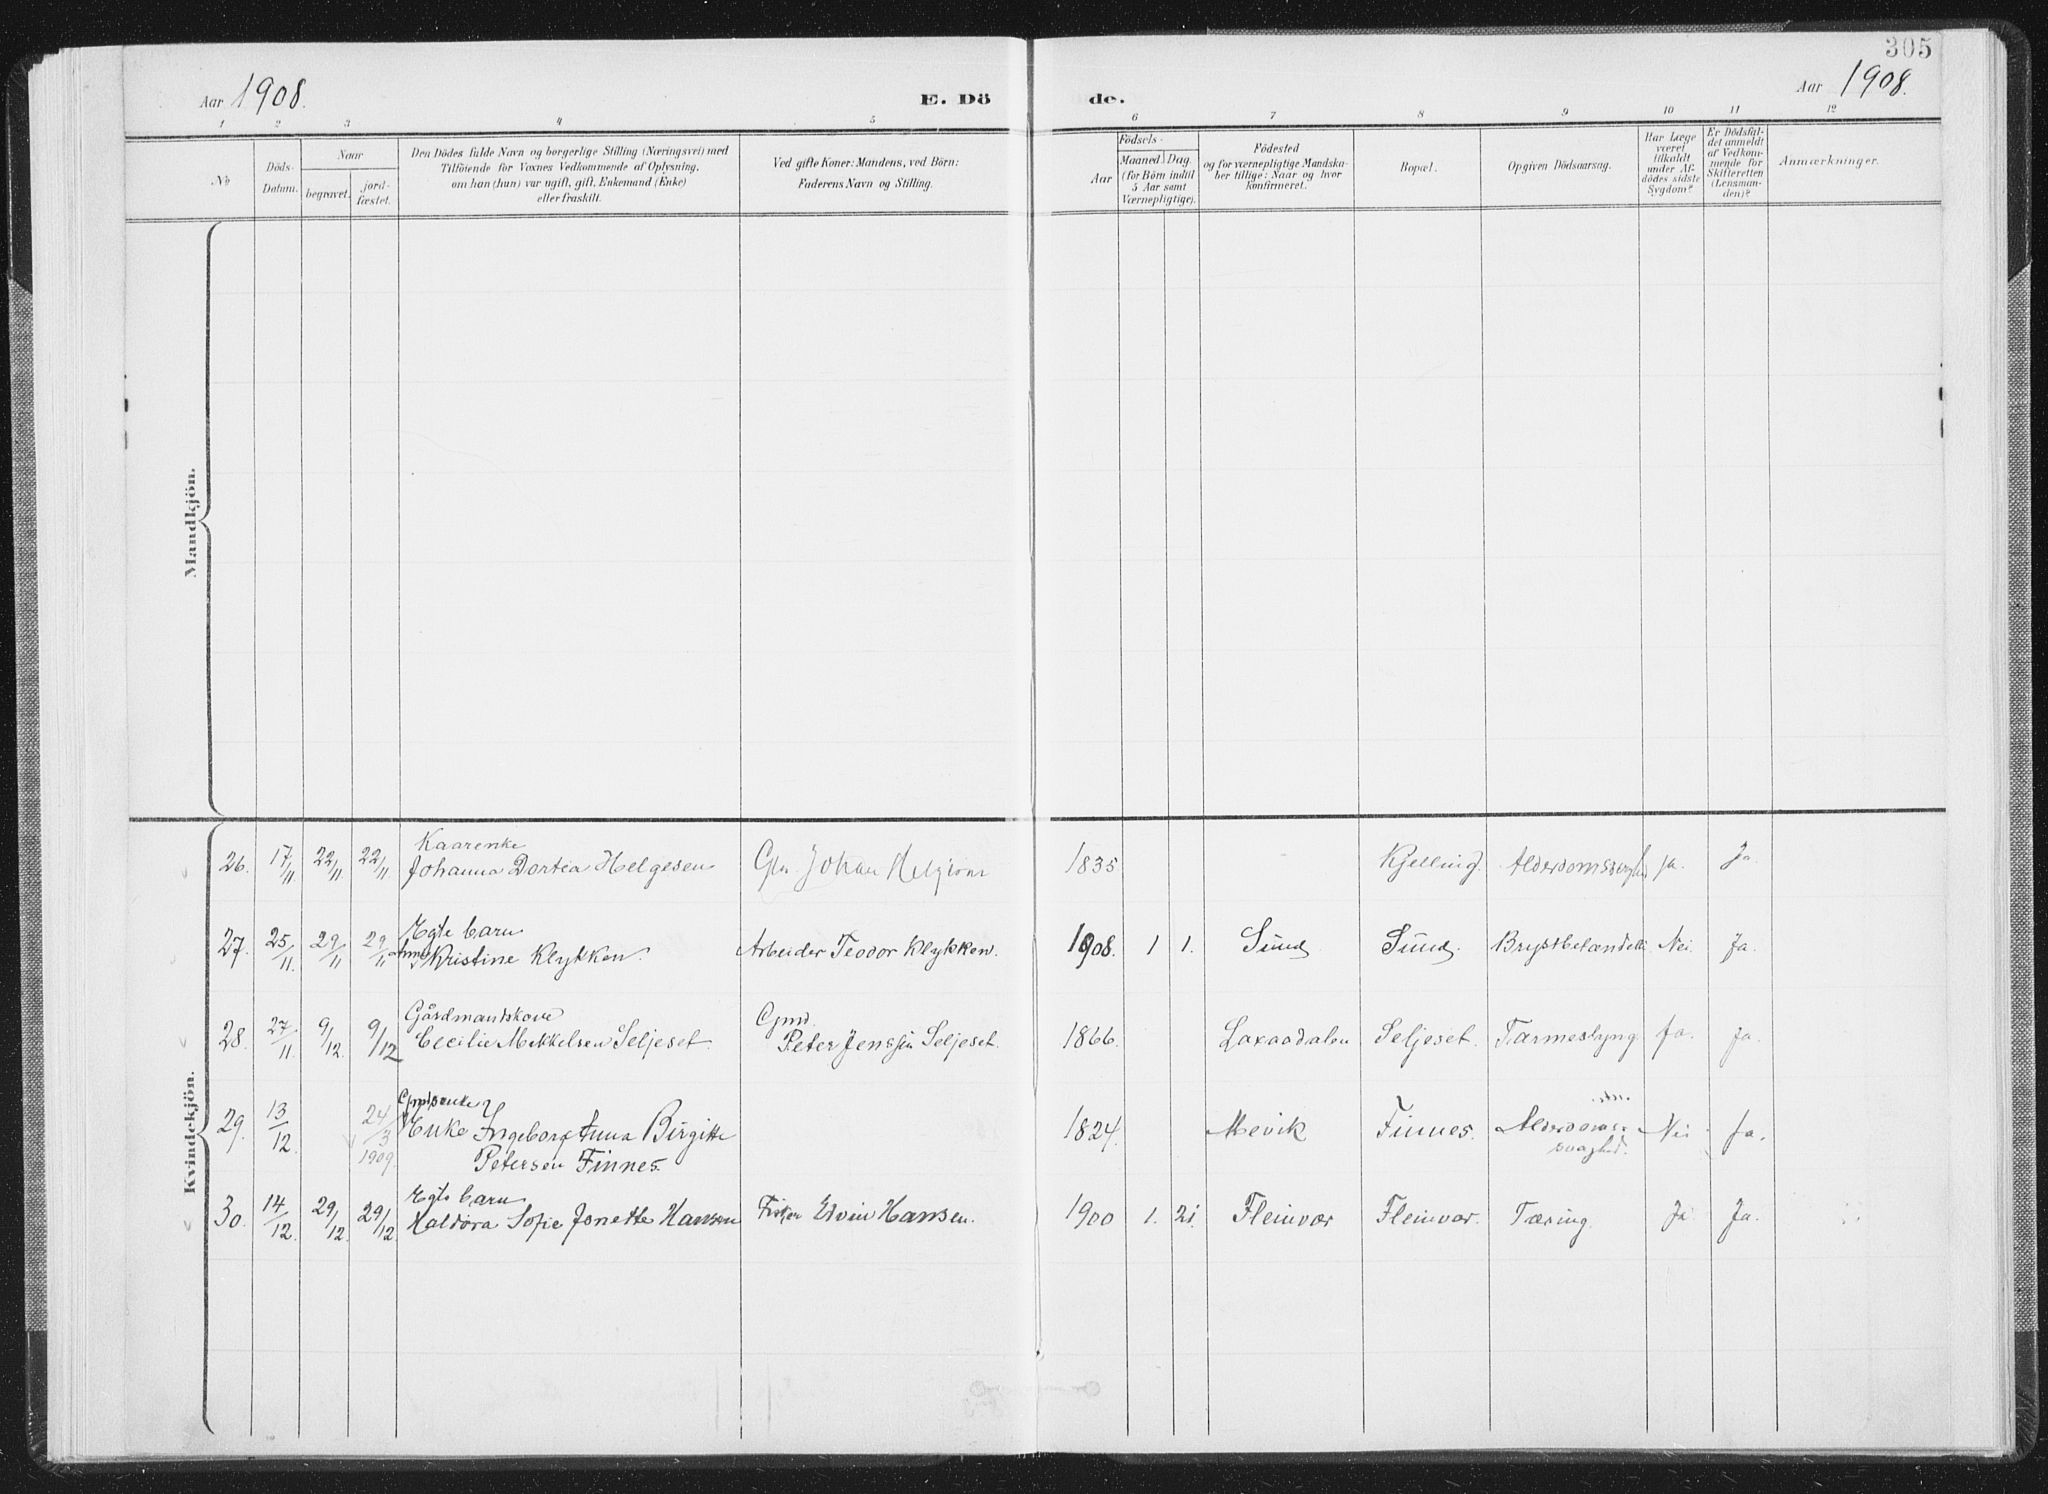 305
Aar 1908.
E. Dö
de.
Aar 1908.
1 2 3 4 5 6 7 8 9 10 11 12
No
Döds-
Datum.
Naar
begravet.
jord-
fæstet.
Den Dödes fulde Navn og borgerlige Stilling (Næringsvei) med
Tilföiende for Voxnes Vedkommende af Oplysning,
om han (hun) var ugift, gift, Enkemand (Enke)
eller fraskilt.
Ved gifte Koner: Mandens, ved Börn:
Faderens Navn og Stilling.
Födsels-
Aar
Maaned Dag.
(for Börn indtil
5 Aar samt
Værnepligtige).
Födested
og for værnepligtige Mandska-
ber tillige: Naar og hvor
konfirmeret.
Bopæl.
Opgiven Dödsaarsag.
Har Læge
været
tilkaldt
under Af-
dödes sidste
Sygdom?
Er Dödsfal-
det anmeldt
af Vedkom-
mende for
Skifteretten
(Lensman-
den)?
Anmærkninger.
Mandkjön.
Kvindekjön.
Kaarenke
26. 17/11 22/11 22/11 Johanna Dortea Helgesen Gm. Johan 1835 Kjelling. ja. Ja.
Egte barn
27. 25/11. 29/11 29/11 Anna Kristine Klykken. Arbeider Teodor Klykken. 1908. 1 1. Sund Sund. Nei Ja.
Gårdmandskone
Gmd.
28. 27/11. 9/12. 9/12 Cecilie Mikkelsen Seljeset. Peter Jenssen Seljeset. 1866. Laxaadalen Seljeset. Tarmeslyng Ja. Ja.
29. 13/12. 24/3 1909. Enke Ingeborg Anna Birgitte 1824. Mevik Finnes. Alderdoms-
svaghed. Nei Ja.
Petersen Finnes.
Egte barn
30. 14/12. 29/12. 29/12 Haldora Sofie Jonette Hansen Fisker Edvin Hansen. 1900 1. 21. Fleinvær Fleinvær. Tæring. Ja Ja.